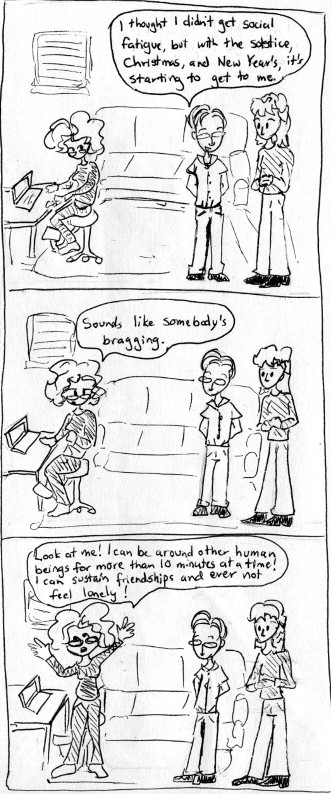 I thought I didn't get social
fatigue, but with the solstice,
Christmas, and New Year's, it's
starting to get to me.
Sounds like somebody's
bragging.
Look at me! I can be around other human
beings for more than 10 minutes at a time!
I can sustain friendships and ever not
feel lonely!